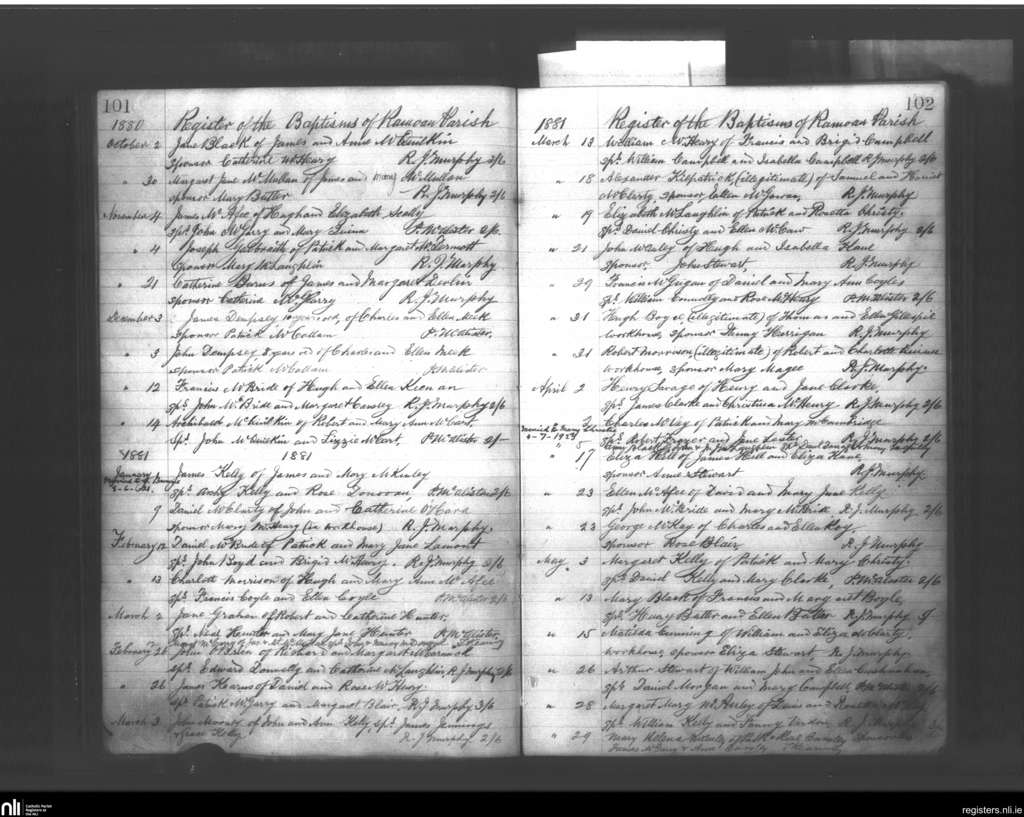 101
1880 Register of the Baptisms of Ramoan Parish
October 2 Jane Black of James and Anne McCuiskin
sponsor Catherine McHenry R. J. Murphy 2/6
" 30 Margaret Jane McMullan of James and Mary McMullan
sponsor Mary Butler R. J. Murphy 2/6
November 4 James McAfee of Hugh and Elizabeth Scally
sprs John McGarry and Mary Quinn P McAlister 2/6.
" 4 Joseph Galbraith of Patrick and Margaret McDermott
sponsor Mary McLaughlin R. J. Murphy
" 21 Catherine Burns of James and Margaret Devlin
sponsor Catherine McGarry R. J. Murphy
December 3 James Dempsey 10 years old, of Charles and Ellen Meek
Sponsor Patrick McCollam P. McAlister.
" 3 John Dempsey 8 years old of Charles and Ellen Meek
sponsor Patrick McCollam P McAlister
" 12 Francis McBride of Hugh and Ellen Keenan
sprs John McBride and Margaret Cassley R. J. Murphy 2/6
" 14 Archibald McCuiskin of Robert and Mary Ann McCart,
Sprs John McCuiskin and Lizzie McCart, P McAlister 2/-
1881 1881
January James Kelly of James and Mary McKinley
sprs Kelly and Rose Donovan, P. McAlister 2/6
9 Daniel McClarty of John and Catherine O'Hara
sponsor Mary McHenry (in workhouse) R. J. Murphy.
February 12 Daniel McBride of Patrick and Mary Jane Lamont
sprs John Boyd and Brigid McHenry. R. J. Murphy 2/6
" 13 Charlott Morrison of Hugh and Mary Anne McAfee
sprs Francis Coyle and Ellen Coyle P McAlister 2/6
March 2 Jane Graham of Robert and Catherine Hunter,
sprs Neal Hunter and Mary Jane Hunter P McAlister,
February 26 John O'Brien of Richard and Margaret McCormick
sprs Edward Donnelly and Catherine McLaughlin, R. J. Murphy 2/6
" 26 James Kearns of David and Rose McHenry
sprs Patrick McGarry and Margaret Blair, R. J. Murphy 3/6
March 3 John Mooney of John and Ann Kelly, sprs James Jennings
& Grace Kelly. R. J. Murphy 2/6
102
1881 Register of the Baptisms of Ramoan Parish
March 13 William McHenry of Francis and Brigid Campbell
sprs William Campbell and Isabella Campbell R. J. Murphy 2/6
" 18 Alexander Kilpatrick, (illegitimate) of Samuel and Harriet
McClarty, sponsor Ellen McGowan, R. J. Murphy
" 19 Elizabeth McLaughlin of Patrick and Rosetta Christy.
sprs Daniel Christy and Ellen McCaw R. J. Murphy 2/6
" 21 John McCaley of Hugh and Isabella Kane
sponsor, John Stewart, R. J. Murphy
" 29 Francis McGugan of Daniel and Mary Ann Coyles
sprs William Connolly and Rose McHenry P McAlister 2/6
" 31 Hugh Boyce (illegitimate) of Thomas and Ellen Gillespie
workhouse, sponsor Fanny Harrigan R. J. Murphy
" 31 Robert Morrison (illegitimate) of Robert and Charlotte
workhouse, sponsor Mary Magee R. J. Murphy.
April 2 Henry Savage of Henry and Jane Clarke,
sprs James Clarke and Christina McHenry R. J. Murphy 2/6
2 Charles McCley of Patrick and Mary McCambridge
Married to Mary
sprs Robert Frazer and Jane R. J. Murphy 2/6
" 5
" 17 Eliza Hill of James Hill and Eliza Kane,
sponsor Anne Stewart R. J. Murphy.
" 23 Ellen McAfee of David and Mary Jane Kelly
sprs John McBride and Mary McBride R. J. Murphy. 2/6
" 23 George McKay of Charles and Ellen Roy.
sponsor Rose Blair R. J. Murphy
May 3 Margaret Kelly of Patrick and Mary Christy.
sprs Daniel Kelly and Mary Clarke, P McAlister 2/6
" 13 Mary Black of Francis and Margaret Boyle,
sprs Henry Butler and Ellen Butler R. J. Murphy
" 15 Matilda Cunning of William and Eliza McClarty.
workhouse, sponsor Eliza Stewart R. J. Murphy
" 26 Arthur Stewart of William John and Eliza
sprs Daniel Morgan and Mary Campbell, P McAlister 2/6
" 28 Margaret Mary McAuley of Lewis and Rosetta
sprs William Kelly and Fanny R. J. Murphy
" 29 Mary Helena
nli
Catholic Parish
Registers at
the NLI
registers.nli.ie